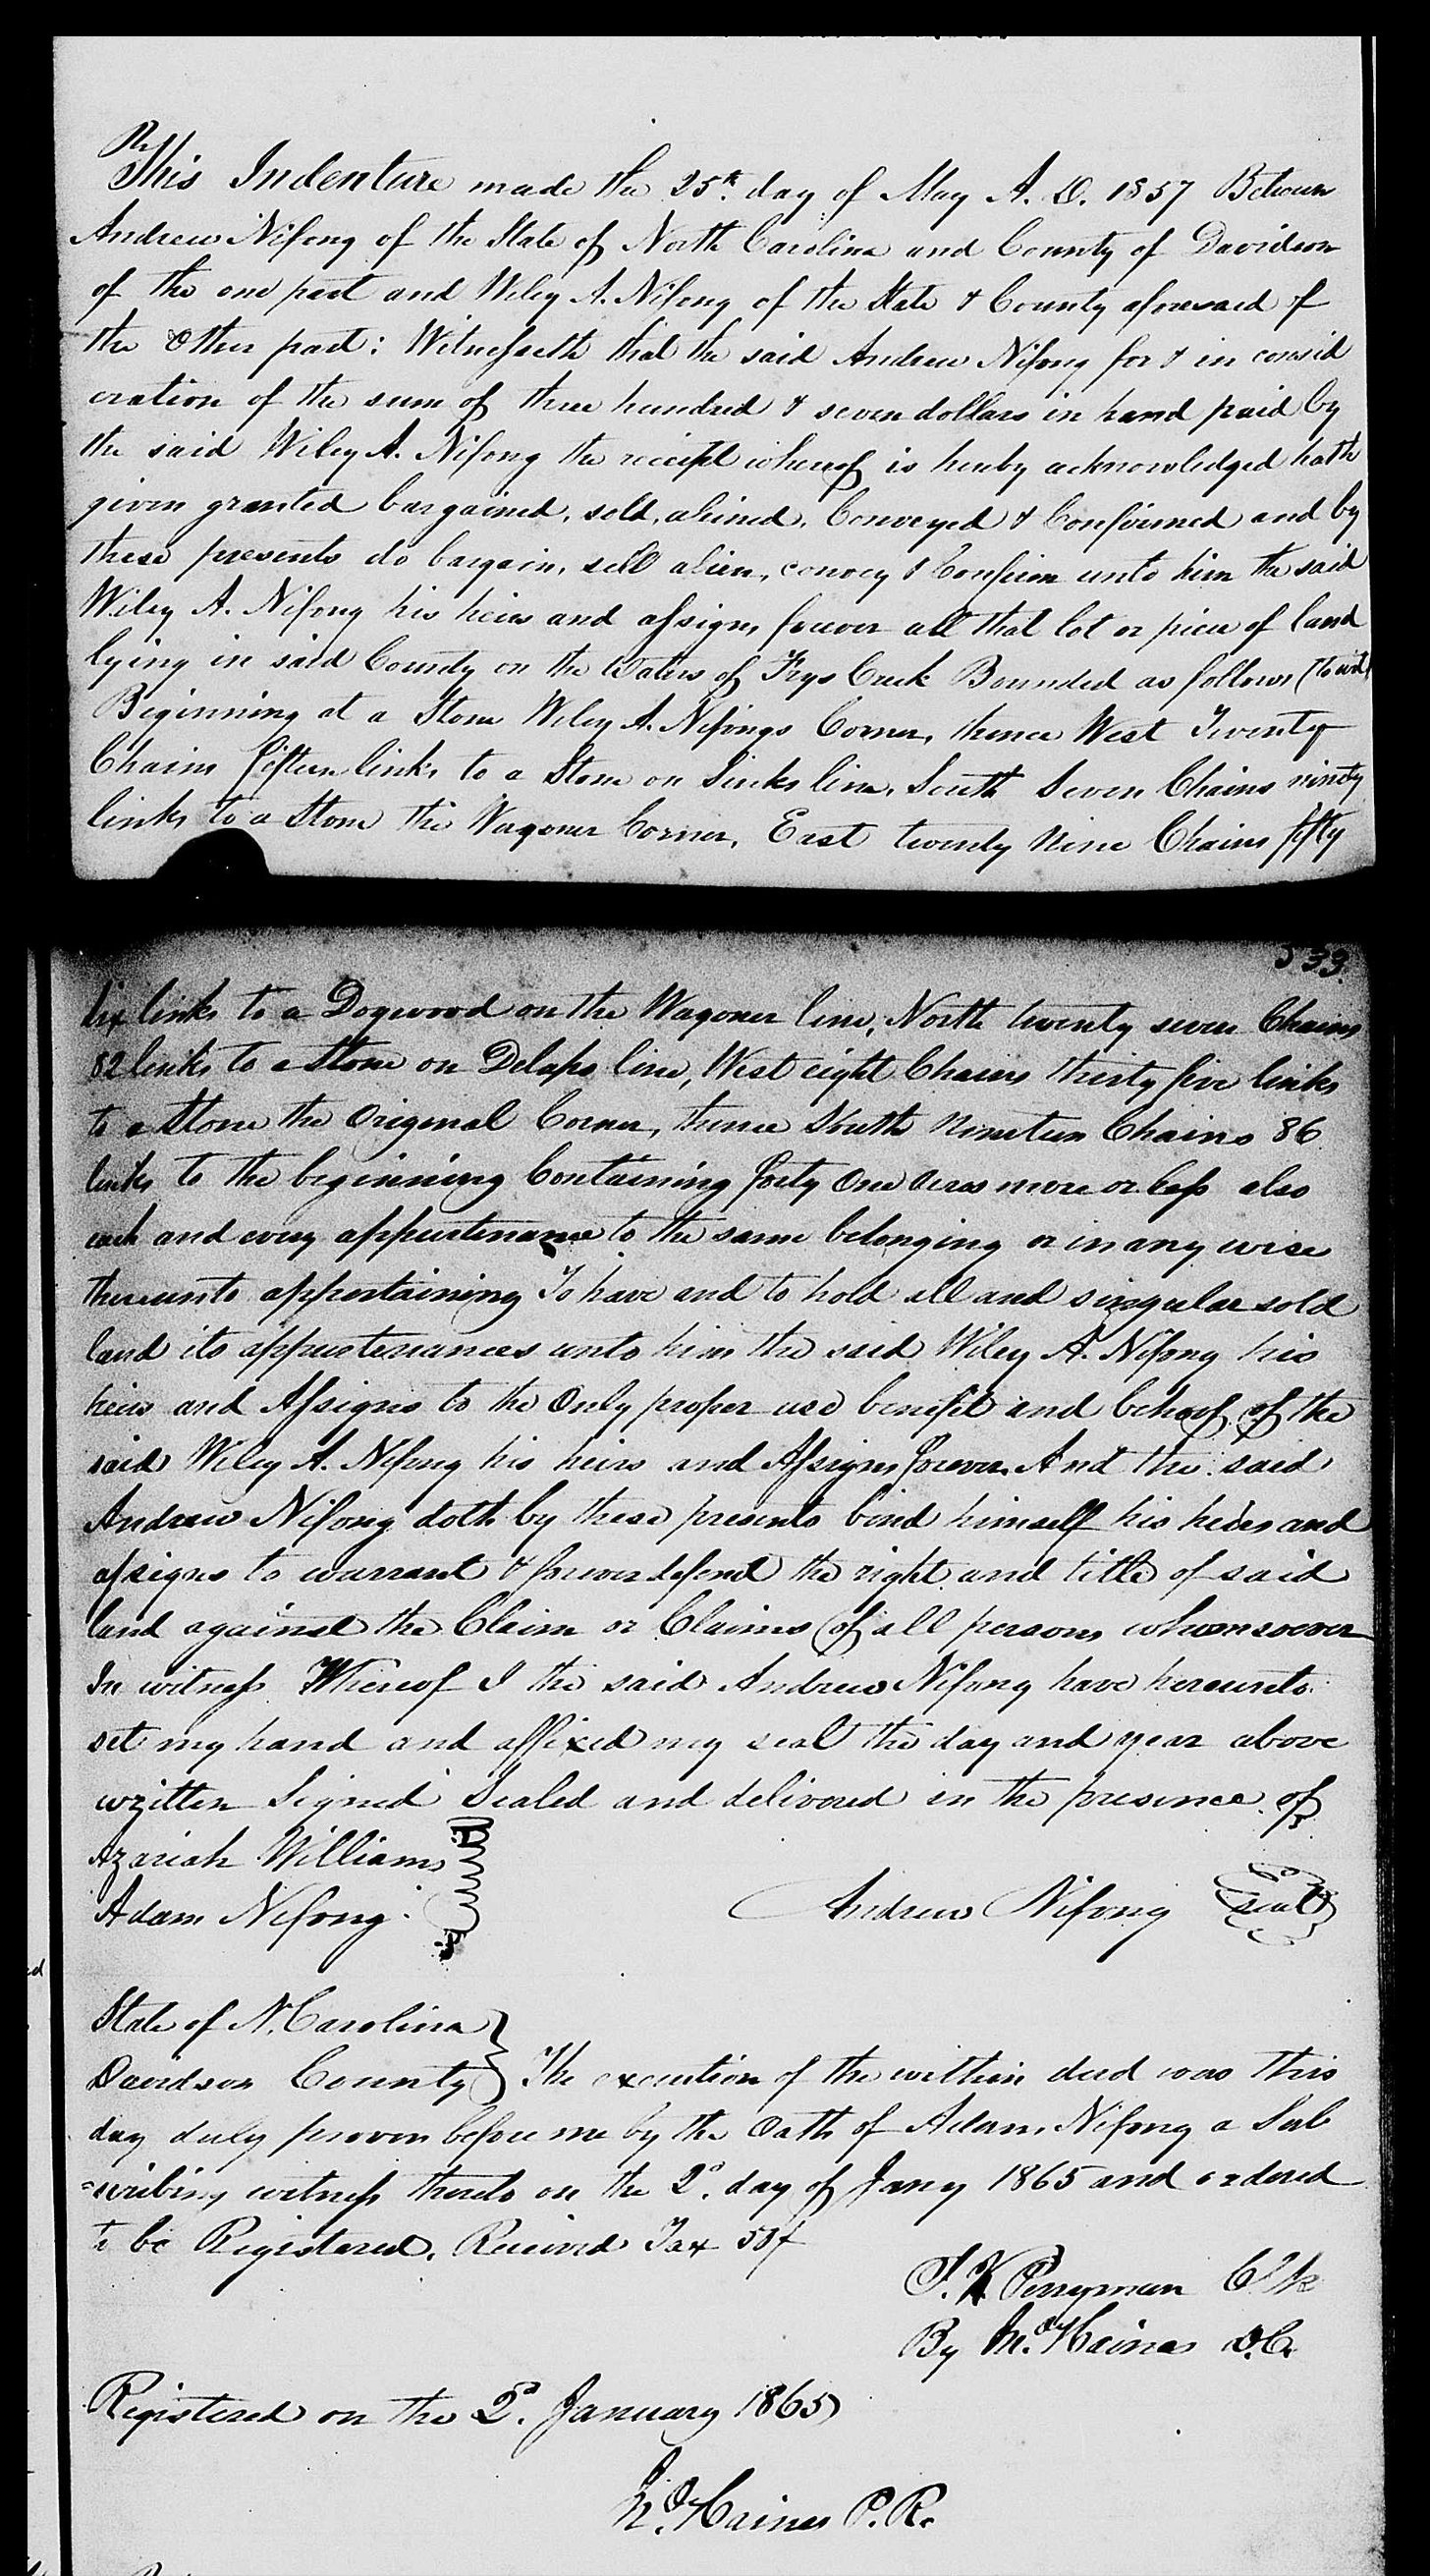 This Indenture made the 25th. day of May A. D. 1857 Between
Andrew Nifong of the State of North Carolina and County of Davidson
of the one part and Wiley A. Nifong of the State & County aforesaid of
the Other part: Witnesseth that the said Andrew Nifong for & in consid
eration of the sum of three hundred & seven dollars in hand paid by
the said Wiley A. Nifong the receipt whereof is hereby acknowledged hath
given granted bargained, sold, aliened, Conveyed & Confirmed and by
these presents do bargain, sell alien, convey & Confirm unto him the said
Wiley A. Nifong his heirs and assigns forever all that lot or piece of land
lying in said County on the Waters of Frys Creek Bounded as follows (to wit)
Beginning at a Stone Wiley A. Nifongs Corner, thence West Twenty
Chains fifteen links to a Stone on Sinks line, South Seven Chains ninety
links to a Stone the Wagoner Corner, East twenty Nine Chains fifty
533
Six links to a Dogwood on the Wagoner line, North twenty seven Chains
82 links to a Stone on Delaps line, West eight Chains thirty five links
to a Stone the Original Corner, thence South Nineteen Chains 86
links to the beginning Containing forty One Acres more or less also
each and every appurtenance to the same belonging or in any wise
thereunto appertaining To have and to hold all and singular sold
land its appurtenances unto him the said Wiley A. Nifong his
heirs and Assigns to the Only proper use benefit and behoof of the
said Wiley A. Nifong his heirs and Assigns forever. And the said
Andrew Nifong doth by these presents bind himself his heirs and
assigns to warrant & forever defend the right and title of said
land against the Claim or Claims of all persons whomsoever
In witness Whereof I the said Andrew Nifong have hereunto
set my hand and affixed my seal the day and year above
written Signed Sealed and delivered in the presence of
Azariah Williams
Adam Nifong
Andrew Nifong seal
State of N. Carolina
Davidson County } The execution of the within deed was this
day duly proven before me by the Oath of Adam Nifong a Sub
scribing witness thereto on the 2d. day of Jany 1865 and ordered
to be Registered. Received Tax 50¢
Perryman Clk
By Haines D.C.
Registered on the 2d. January 1865
Haines P. R.